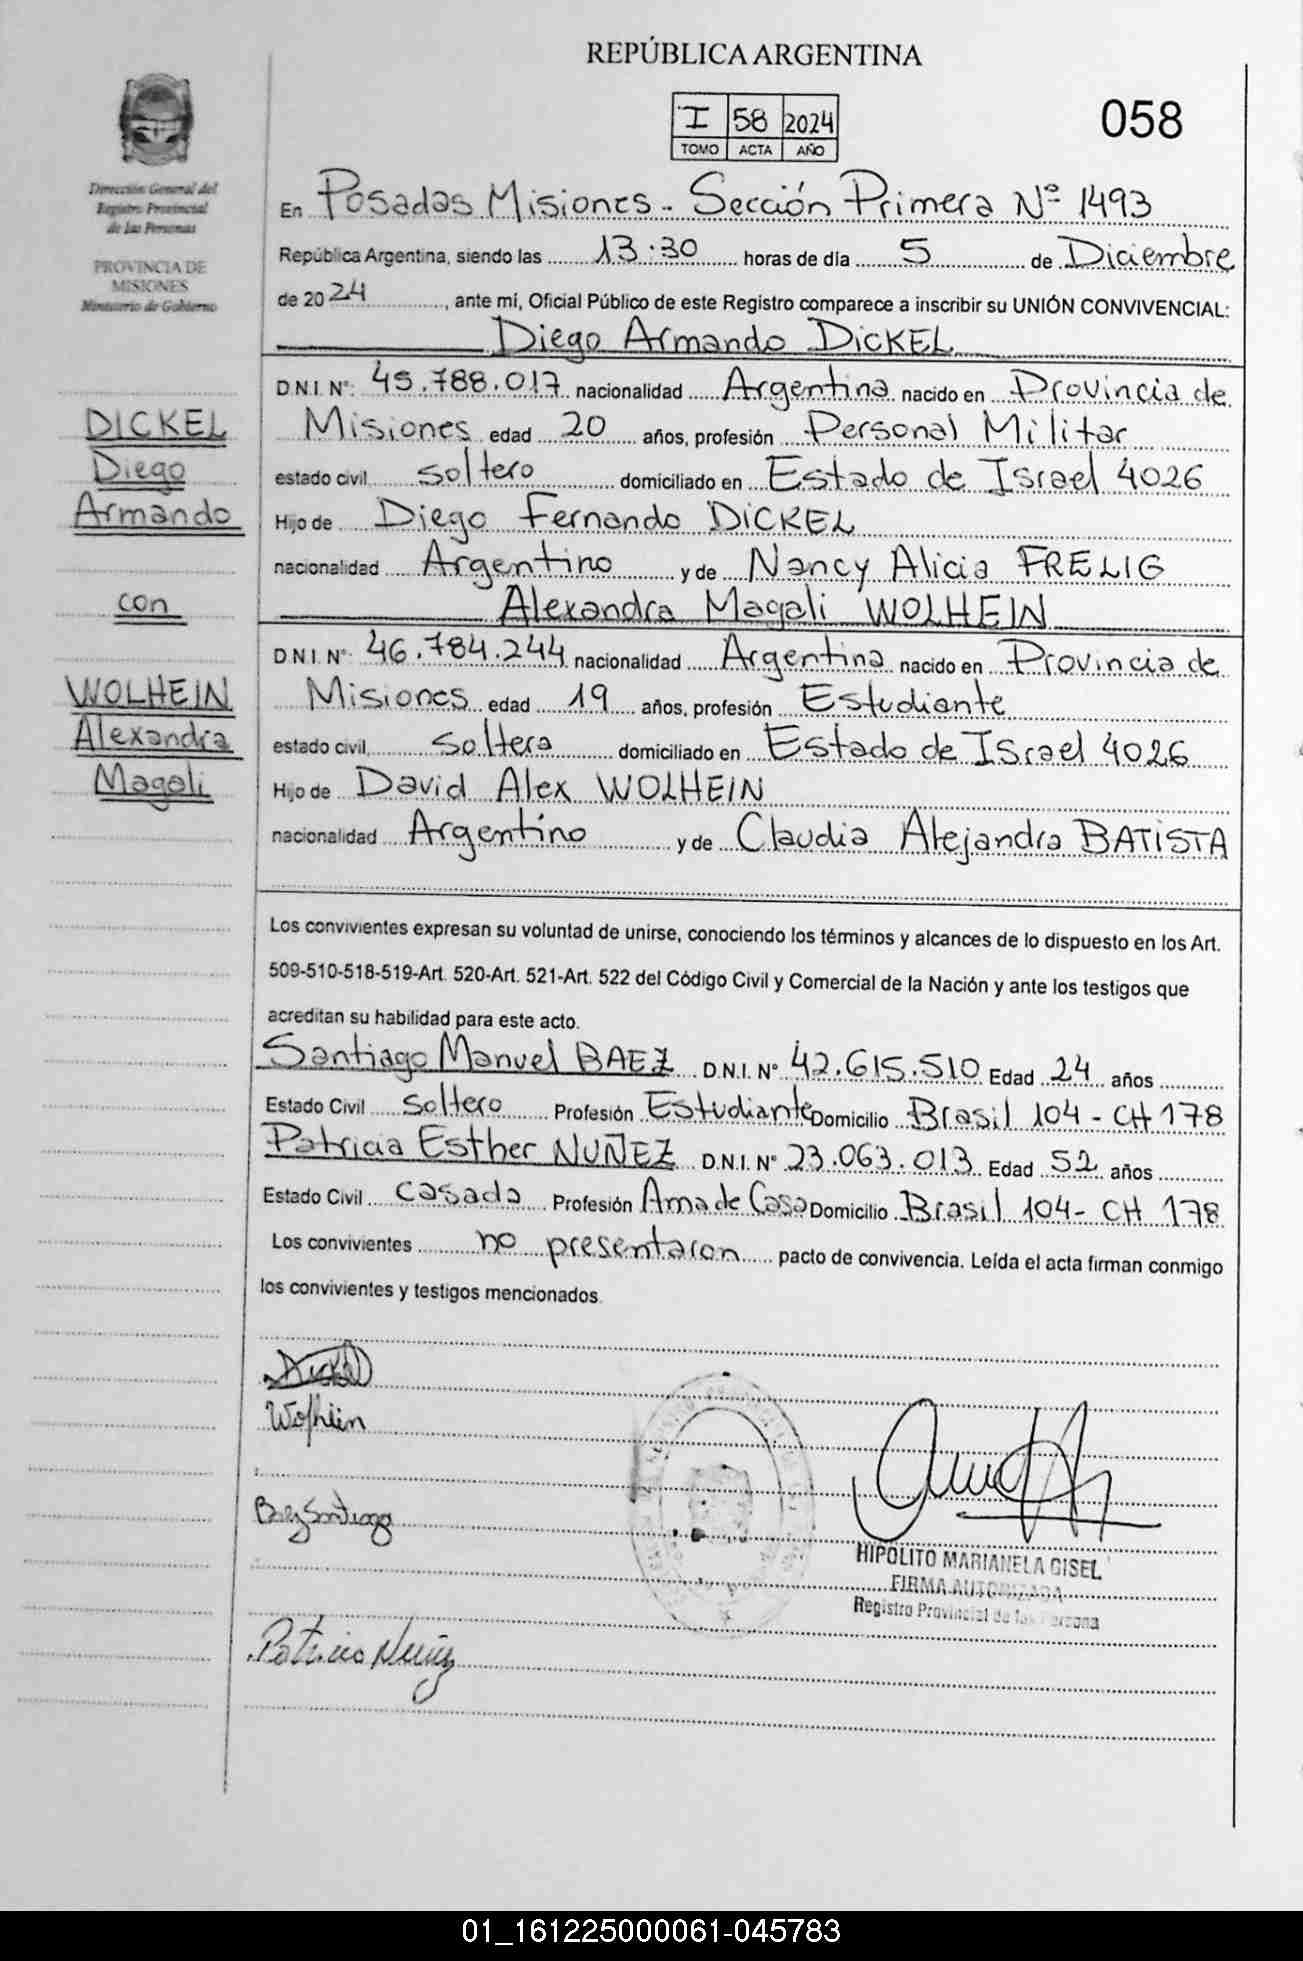 REPÚBLICA ARGENTINA
I 58 2024
TOMO ACTA AÑO
058
Dirección General del
Registro Provincial
de las Personas
PROVINCIA DE
MISIONES
Ministerio de Gobierno
En Posadas Misiones - Sección Primera Nº 1493
República Argentina, siendo las 13:30 horas de día 5 de Diciembre
de 2024, ante mí, Oficial Público de este Registro comparece a inscribir su UNIÓN CONVIVENCIAL:
Diego Armando DICKEL
D.N.I. Nº: 45.788.017 nacionalidad Argentina nacido en Provincia de
Misiones edad 20 años, profesión Personal Militar
estado civil soltero domiciliado en Estado de Israel 4026
Hijo de Diego Fernando DICKEL
nacionalidad Argentino y de Nancy Alicia FRELIG
Alexandra Magali WOLHEIN
D.N.I. Nº: 46.784.244 nacionalidad Argentina nacido en Provincia de
Misiones edad 19 años, profesión Estudiante
estado civil Soltera domiciliado en Estado de Israel 4026
Hijo de David Alex WOLHEIN
nacionalidad Argentino y de Claudia Alejandra BATISTA
DICKEL
Diego
Armando
con
WOLHEIN
Alexandra
Magali
Los convivientes expresan su voluntad de unirse, conociendo los términos y alcances de lo dispuesto en los Art.
509-510-518-519-Art. 520-Art. 521-Art. 522 del Código Civil y Comercial de la Nación y ante los testigos que
acreditan su habilidad para este acto.
Santiago Manuel BAEZ D.N.I. Nº 42.615.510 Edad 24 años
Estado Civil Soltero Profesión Estudiante Domicilio Brasil 104 - CH 178
Patricia Esther NUÑEZ D.N.I. Nº 23.063.013 Edad 52 años
Estado Civil casada Profesión Ama de Casa Domicilio Brasil 104- CH 178
Los convivientes no presentaron pacto de convivencia. Leída el acta firman conmigo
los convivientes y testigos mencionados.
Dickel
Wolhein
Baez Santiago
HIPOLITO MARIANELA GISEL
FIRMA AUTORIZADA
Registro Provincial de las Persona
Patricia Nuñez
01_161225000061-045783